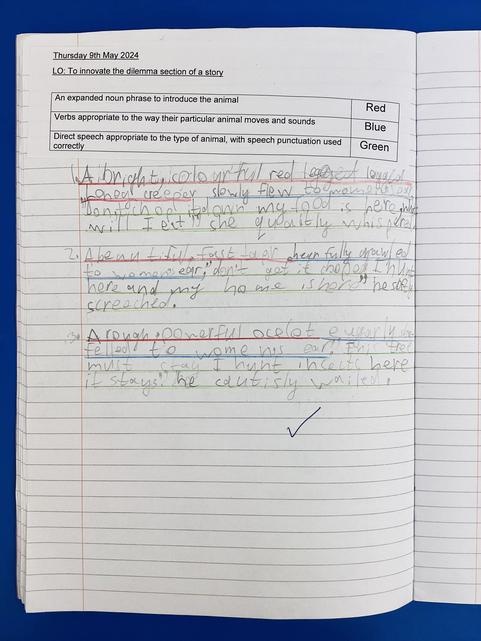 Thursday 9th May 2024
LO: To innovate the dilemma section of a story
An expanded noun phrase to introduce the animal
Red
Verbs appropriate to the way their particular animal moves and sounds
Blue
Direct speech appropriate to the type of animal, with speech punctuation used correctly
Green
1. A bright, colourful red legged
honey creeper slowly flew to
don't chop it down my food is here
will I eat" she
2. A beautiful, fast tapir
to womens ear, "don't get it choped I hunt
here and my home is here" he
screached.
3. A rough, powerful ocelot
to womens ear. "This tree
must stay I hunt insects here
it stays" he cautisly wailed.